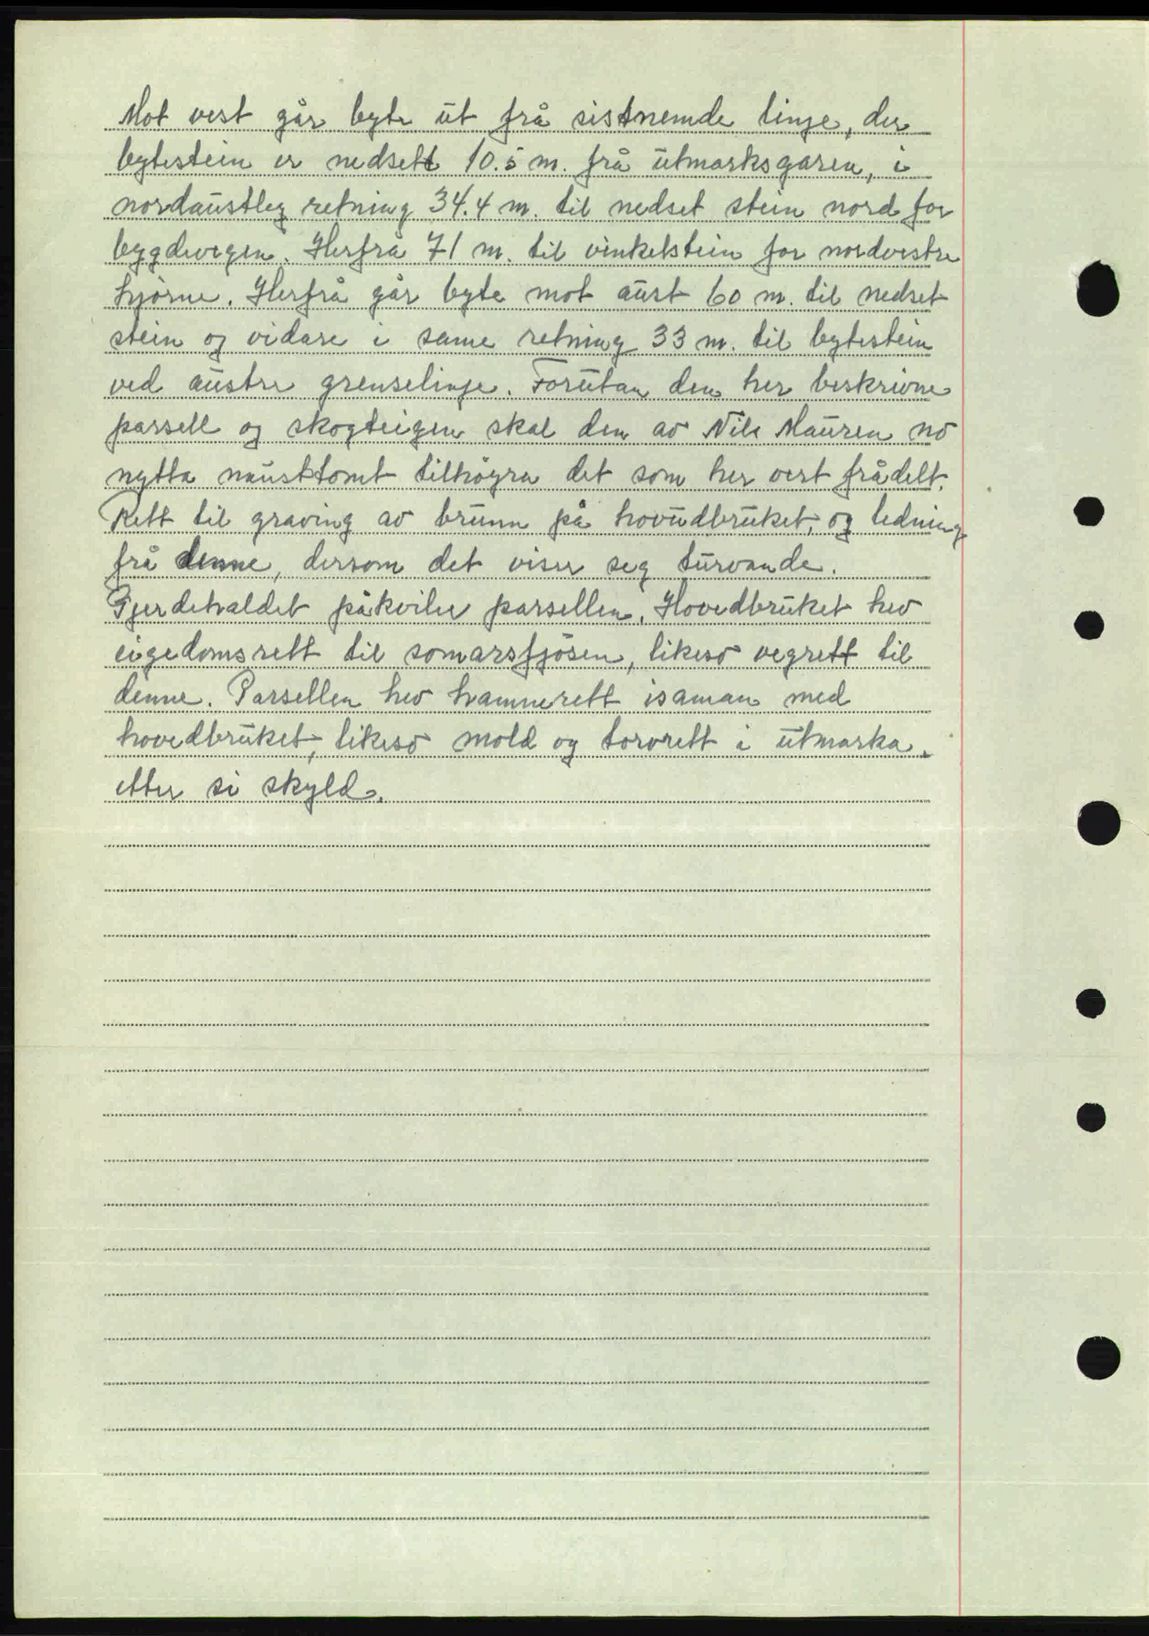 Mot vest går byte ut frå sistnemde linje, der
bytestein er nedsett 10.5 m. frå utmarksgaren, i
nordaustleg retning 34.4 m. til nedset stein nord for
bygdevegen. Herfrå 71 m. til vinkelstein for nordvestre
hjørne. Herfrå går byte mot aust 60 m. til nedset
stein og vidare i same retning 33 m. til bytestein
ved austre grenselinje. Forutan den her beskrivne
parsell og skogteigen skal den av Nils Mauren no
nytta nausttomt tilhøyra det som her vert frådelt.
Rett til graving av brunn på hovudbruket, og ledning
frå denne, dersom det viser seg turvande.
Gjerdehaldet påkviler parsellen. Hovedbruket hev
eigedomsrett til somarsfjösen, likeso vegrett til
denne. Parsellen hev hamnerett isaman med
hovedbruket, likeso mold og torvrett i utmarka.
etter si skyld.